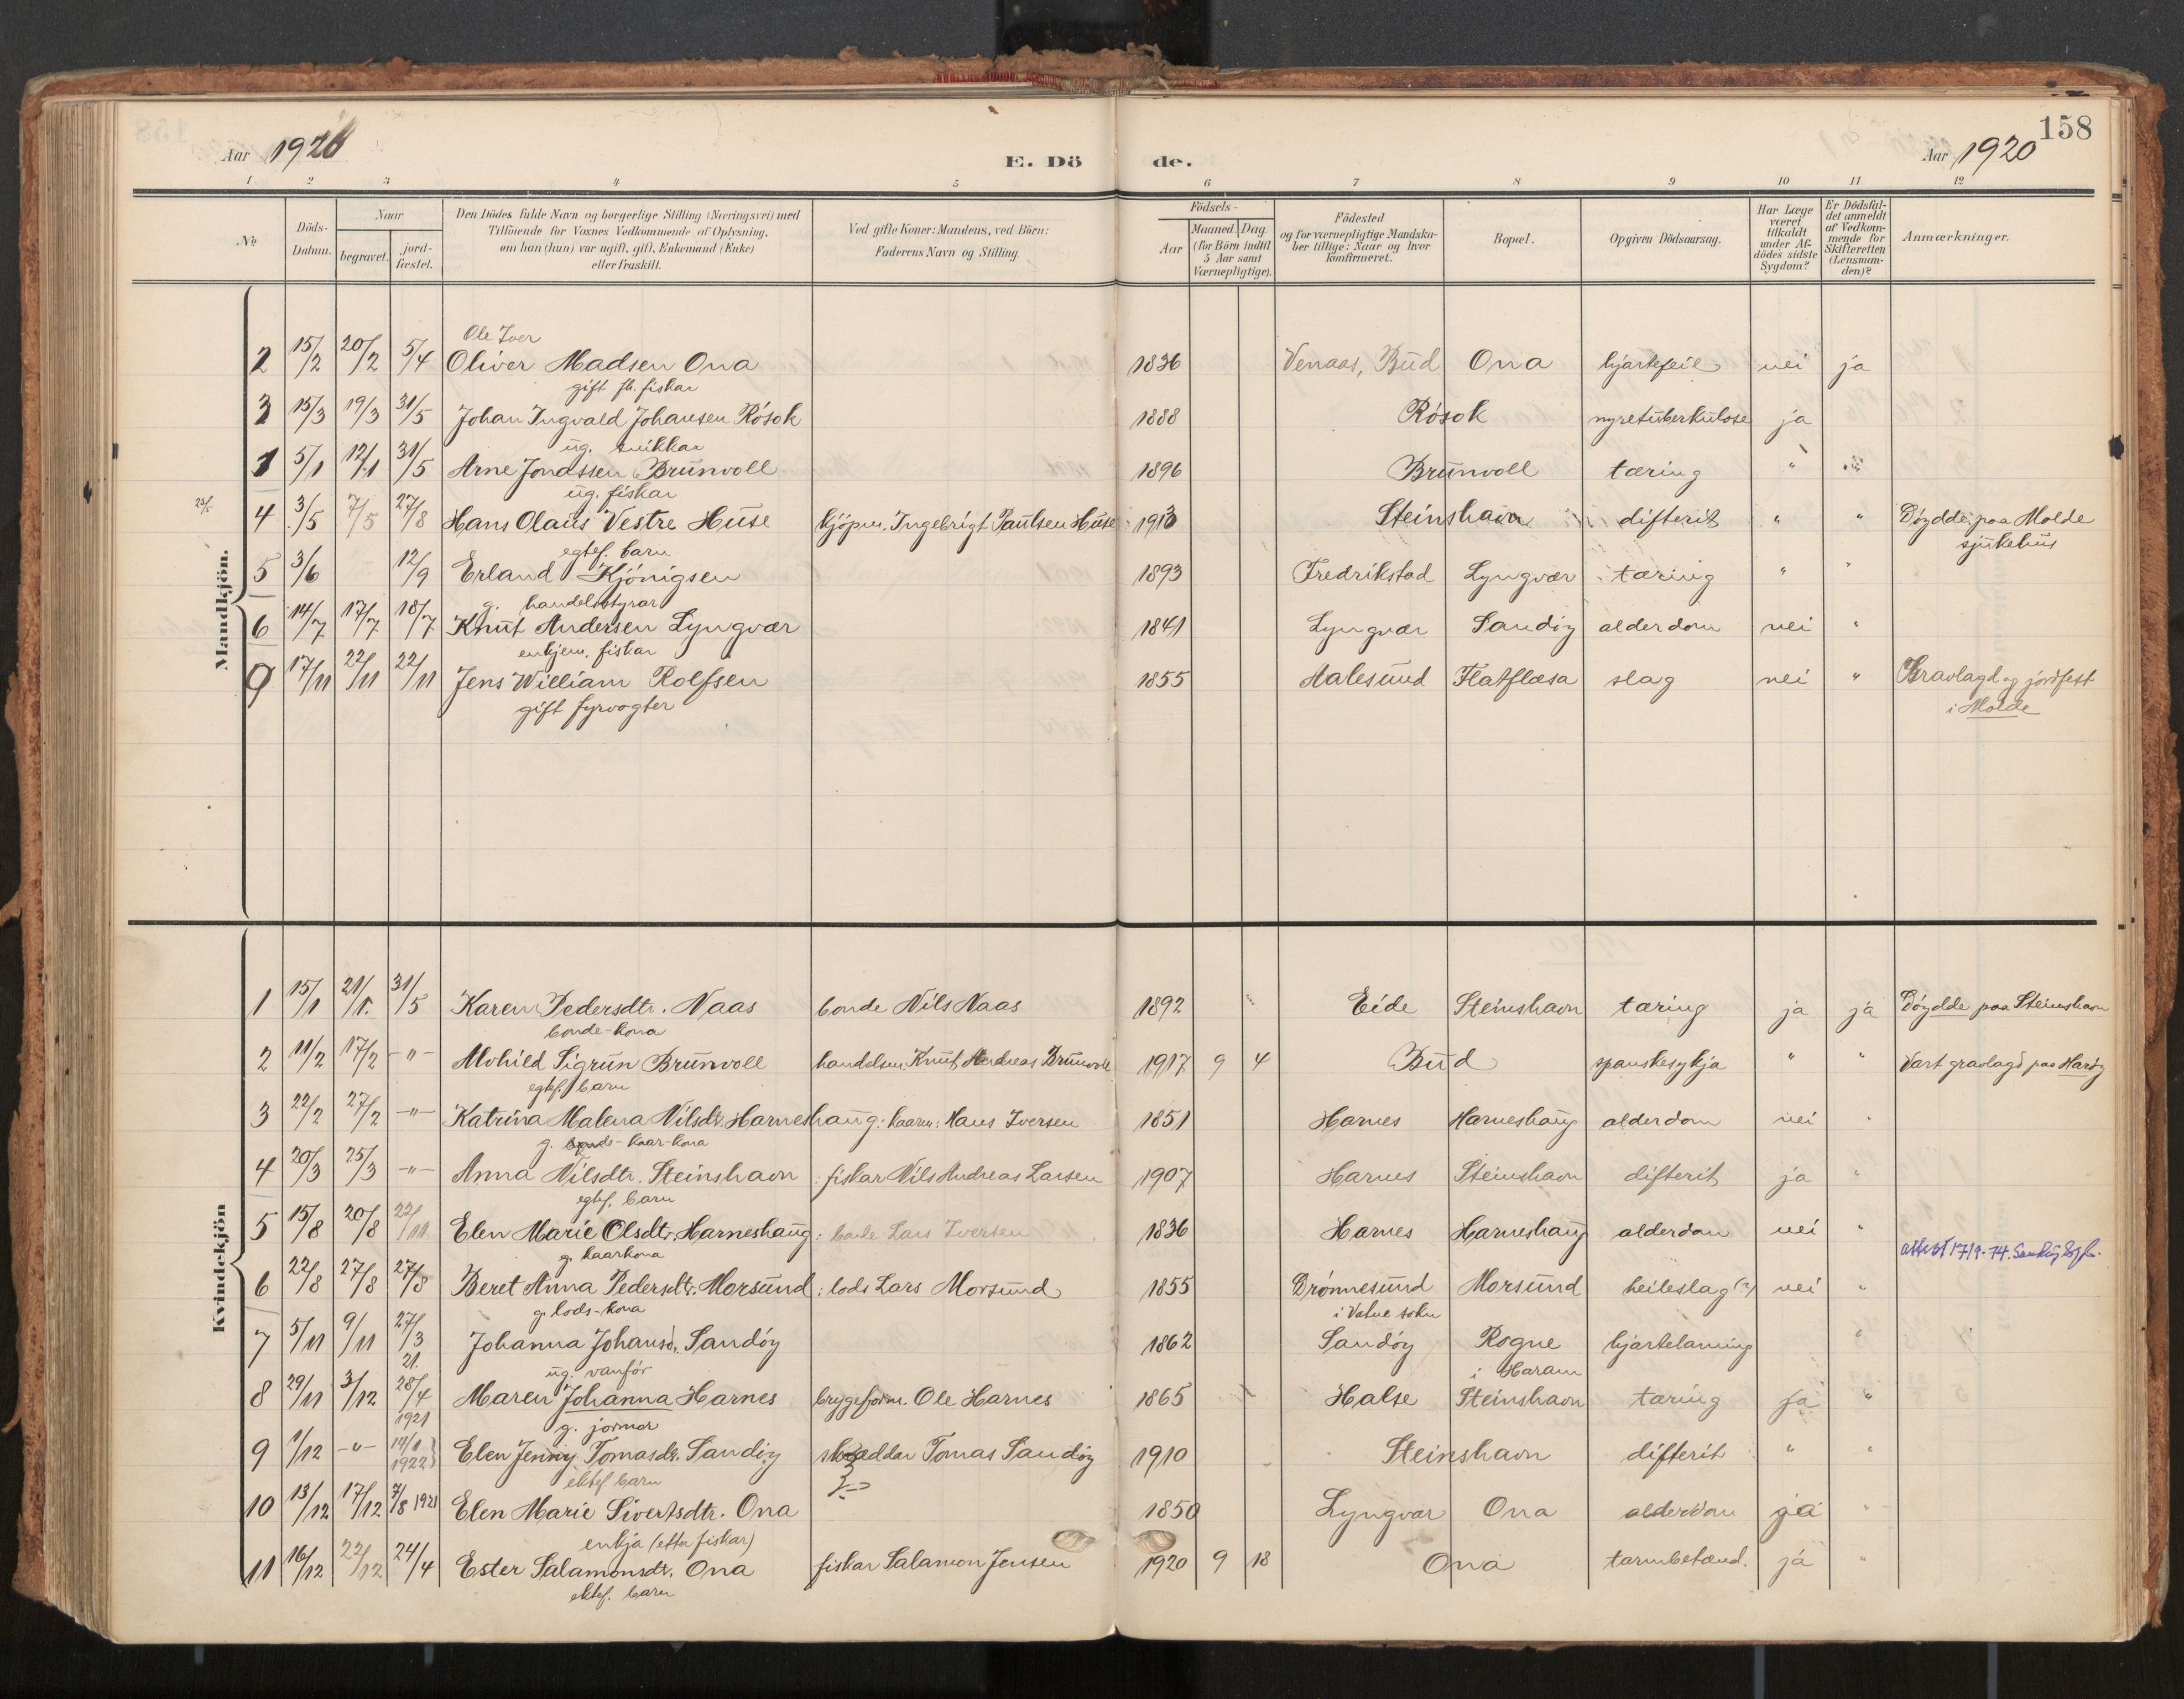 158
Aar 1920
E. Dö de.
Aar 1920
1 2 3 4 5 6 7 8 9 10 11 12
No
Döds-Datum.
Naar
begravet.
jord-fæstet.
Den Dödes fulde Navn og borgerlige Stilling (Næringsvei) med
Tilföiende for Voxnes Vedkommende af Oplysning,
om han (hun) var ugift, gift, Enkemand (Enke)
eller fraskilt.
Ved gifte Koner: Mandens, ved Börn:
Faderens Navn og Stilling.
Födsels-
Aar
Maaned. Dag.
(for Börn indtil
5 Aar samt
Værnepligtige).
Födested
og for værnepligtige Mandska-
ber tillige: Naar og hvor
konfirmeret.
Bopæl.
Opgiven Dödsaarsag.
Har Læge
været
tilkaldt
under Af-
dödes sidste
Sygdom?
Er Dödsfal-
det anmeldt
af Vedkom-
mende for
Skifteretten
(Lensman-
den)?
Anmærkninger.
Mandkjön.
Ole Iver
2 15/2 20/2 5/4 Oliver Madsen Ona 1836 Venaas, Bud Ona hjartefeil nei ja
gift fh. fiskar
3 15/3 19/3 31/5 Johan Ingvald Johansen Rösok 1888 Rösok nyretuberkulose ja
ug. snikkar
1 5/1 12/1 31/5 Arne Jonassen Brunvoll 1896 Brunvoll tæring " "
ug. fiskar
4 3/5 7/5 27/8 Hans Olaus Vestre Huse kjöpm. Ingebrigt Paulsen Huse 1913 Steinshavn difterit " " Döydde paa Molde
egtef. barn sjukehus
5 3/6 12/9 Erland Kjönigsen 1893 Fredrikstad Lyngvær tæring " "
g. handelsstyrar
6 14/7 17/7 18/7 Knut Andersen Lyngvær 1841 Lyngvær Sandöy alderdom nei "
enkjem. fiskar
9 17/11 22/11 22/11 Jens William Rolfsen 1855 Aalesund Flatflæsa slag nei " Gravlagd og jordfest
gift fyrvogter i Molde
Kvindekjön
1 15/1 21/1. 31/5 Karen Pedersdtr. Naas bonde Nils Naas 1892 Eide Steinshavn tæring ja ja Döydde paa Steinshavn
bonde-kona
2 11/2 17/2 -"- Alvhild Sigrun Brunvoll handelsm. Knut Andreas Brunvoll 1917 9 4 Bud spanskesykja " " Vart gravlagd paa Haröy
egtef. barn
3 22/2 27/2 -"- Katrina Malena Nilsdtr. Harneshaug: kaarm: Hans Iversen 1851 Harnes Harneshaug alderdom nei "
g. kaar-kona
4 20/3 25/3 -"- Anna Nilsdtr. Steinshavn : fiskar Nils Andreas Larsen 1907 Harnes Steinshavn difterit ja "
egtef. barn
5 15/8 20/8 22/11 Elen Marie Olsdtr. Harneshaug : Lars Iversen 1836 Harnes Harneshaug alderdom nei "
g. kaarkona
attest 17/9-74.
6 22/8 27/8 27/8 Beret Anna Pedersdtr. Morsund : lods Lars Morsund 1855 Drönnesund Morsund heileslag (?) nei "
g. lods-kona i Vatne sokn
7 5/11 9/11 27/3 21. Johanna Johansd. Sandöy 1862 Sandöy Rogne hjartelaming "
ug. vanför i Haram
8 29/11 3/12 28/4 1921 Maren Johanna Harnes bryggeform. Ole Harnes 1865 Halse Steinshavn tæring ja "
g. jormor
9 1/12 -"- 14/1 1922 Elen Jenny Tomasdtr. Sandöy skræddar Tomas Sandöy 1910 Steinshavn difterit " "
ektef. barn
10 13/12 17/12 7/8 1921 Elen Marie Sivertsdtr. Ona 1850 Lyngvær Ona alderdom ja "
enkja (etter fiskar)
11 16/12 22/12 24/4 Ester Salamonsdtr. Ona fiskar Salamon Jensen 1920 9 18 Ona tarmbetænd. ja "
ektef. barn